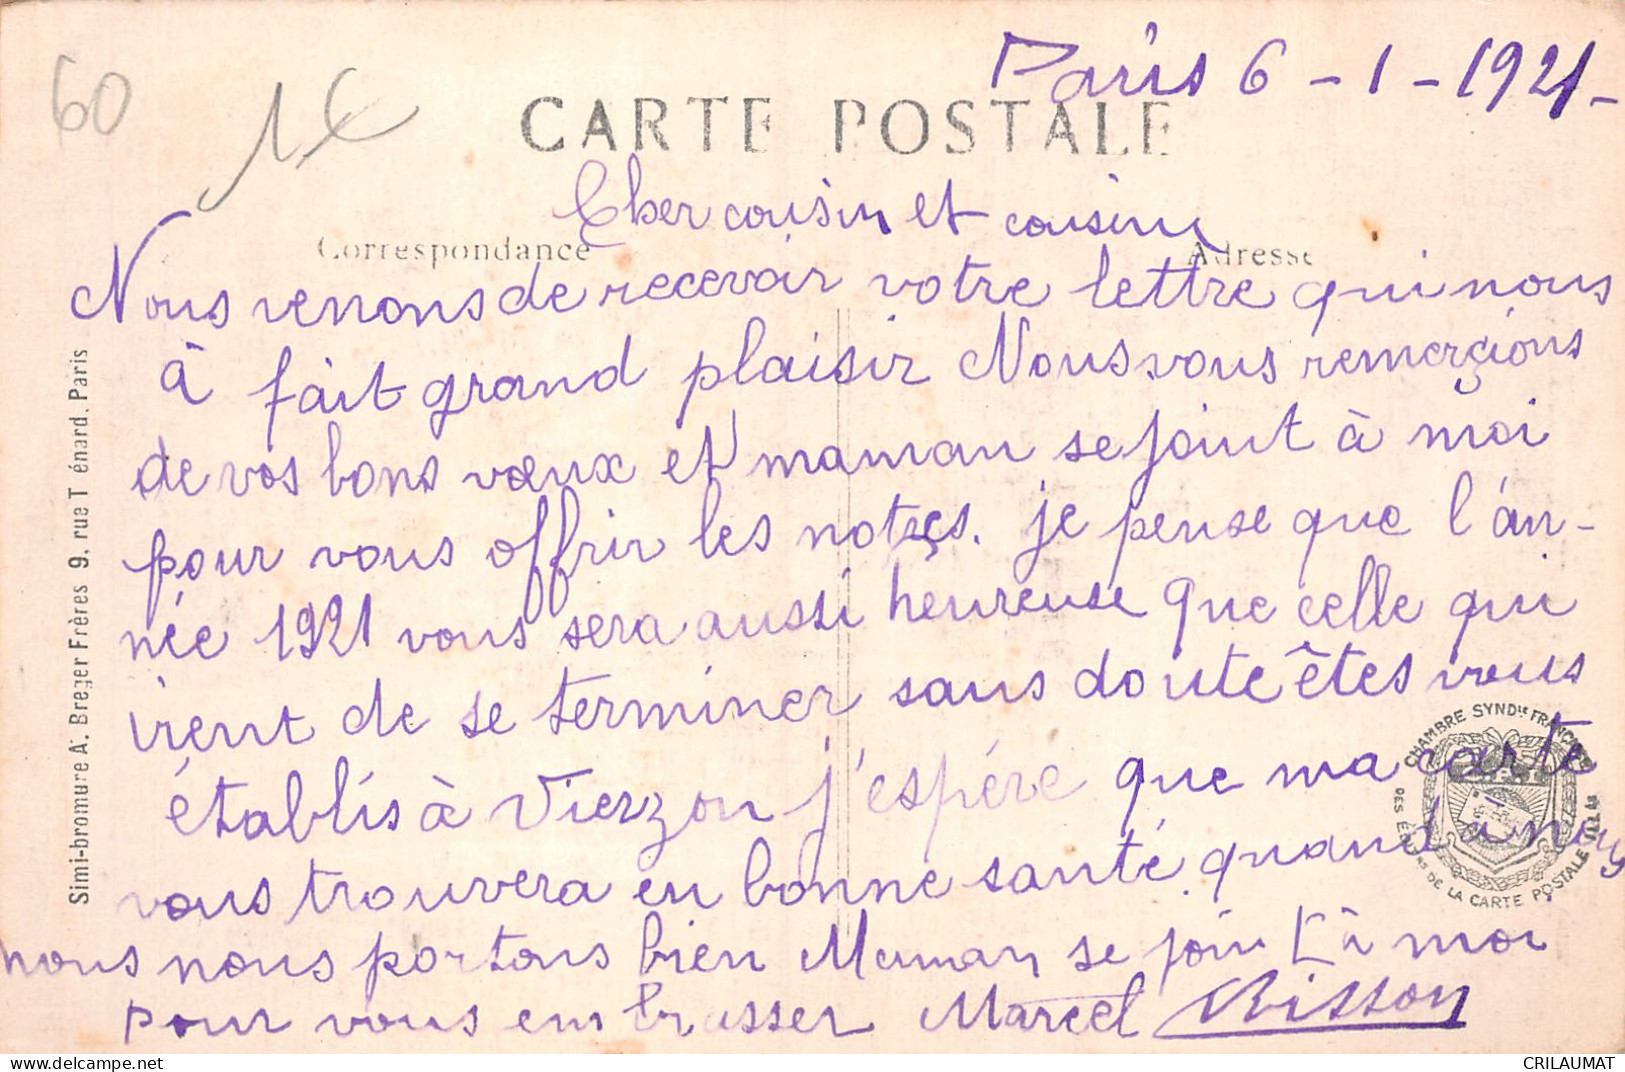 60
1€
Paris 6-1-1921-
CARTE POSTALE
Cher cousin et cousine
Correspondance
Adresse
Nous venons de recevoir votre lettre qui nous
à fait grand plaisir Nous vous remerçions
de vos bons vœux et maman se joint à moi
pour vous offrir les notres. je pense que l'an-
née 1921 vous sera aussi heureuse que celle qui
vient de se terminer sans doute êtes vous
établis à Vierzon j'espére que ma carte
vous trouvera en bonne santé quand à nous
nous nous portons bien Maman se joint à moi
pour vous embrasser Marcel Bisson
Simi-bromure A. Breger Frères 9, rue Ténard. Paris
CHAMBRE SYNDle FRANÇAISE
DES ÉDITrs DE LA CARTE POSTALE ILLée
delcampe.net
CRILAUMAT